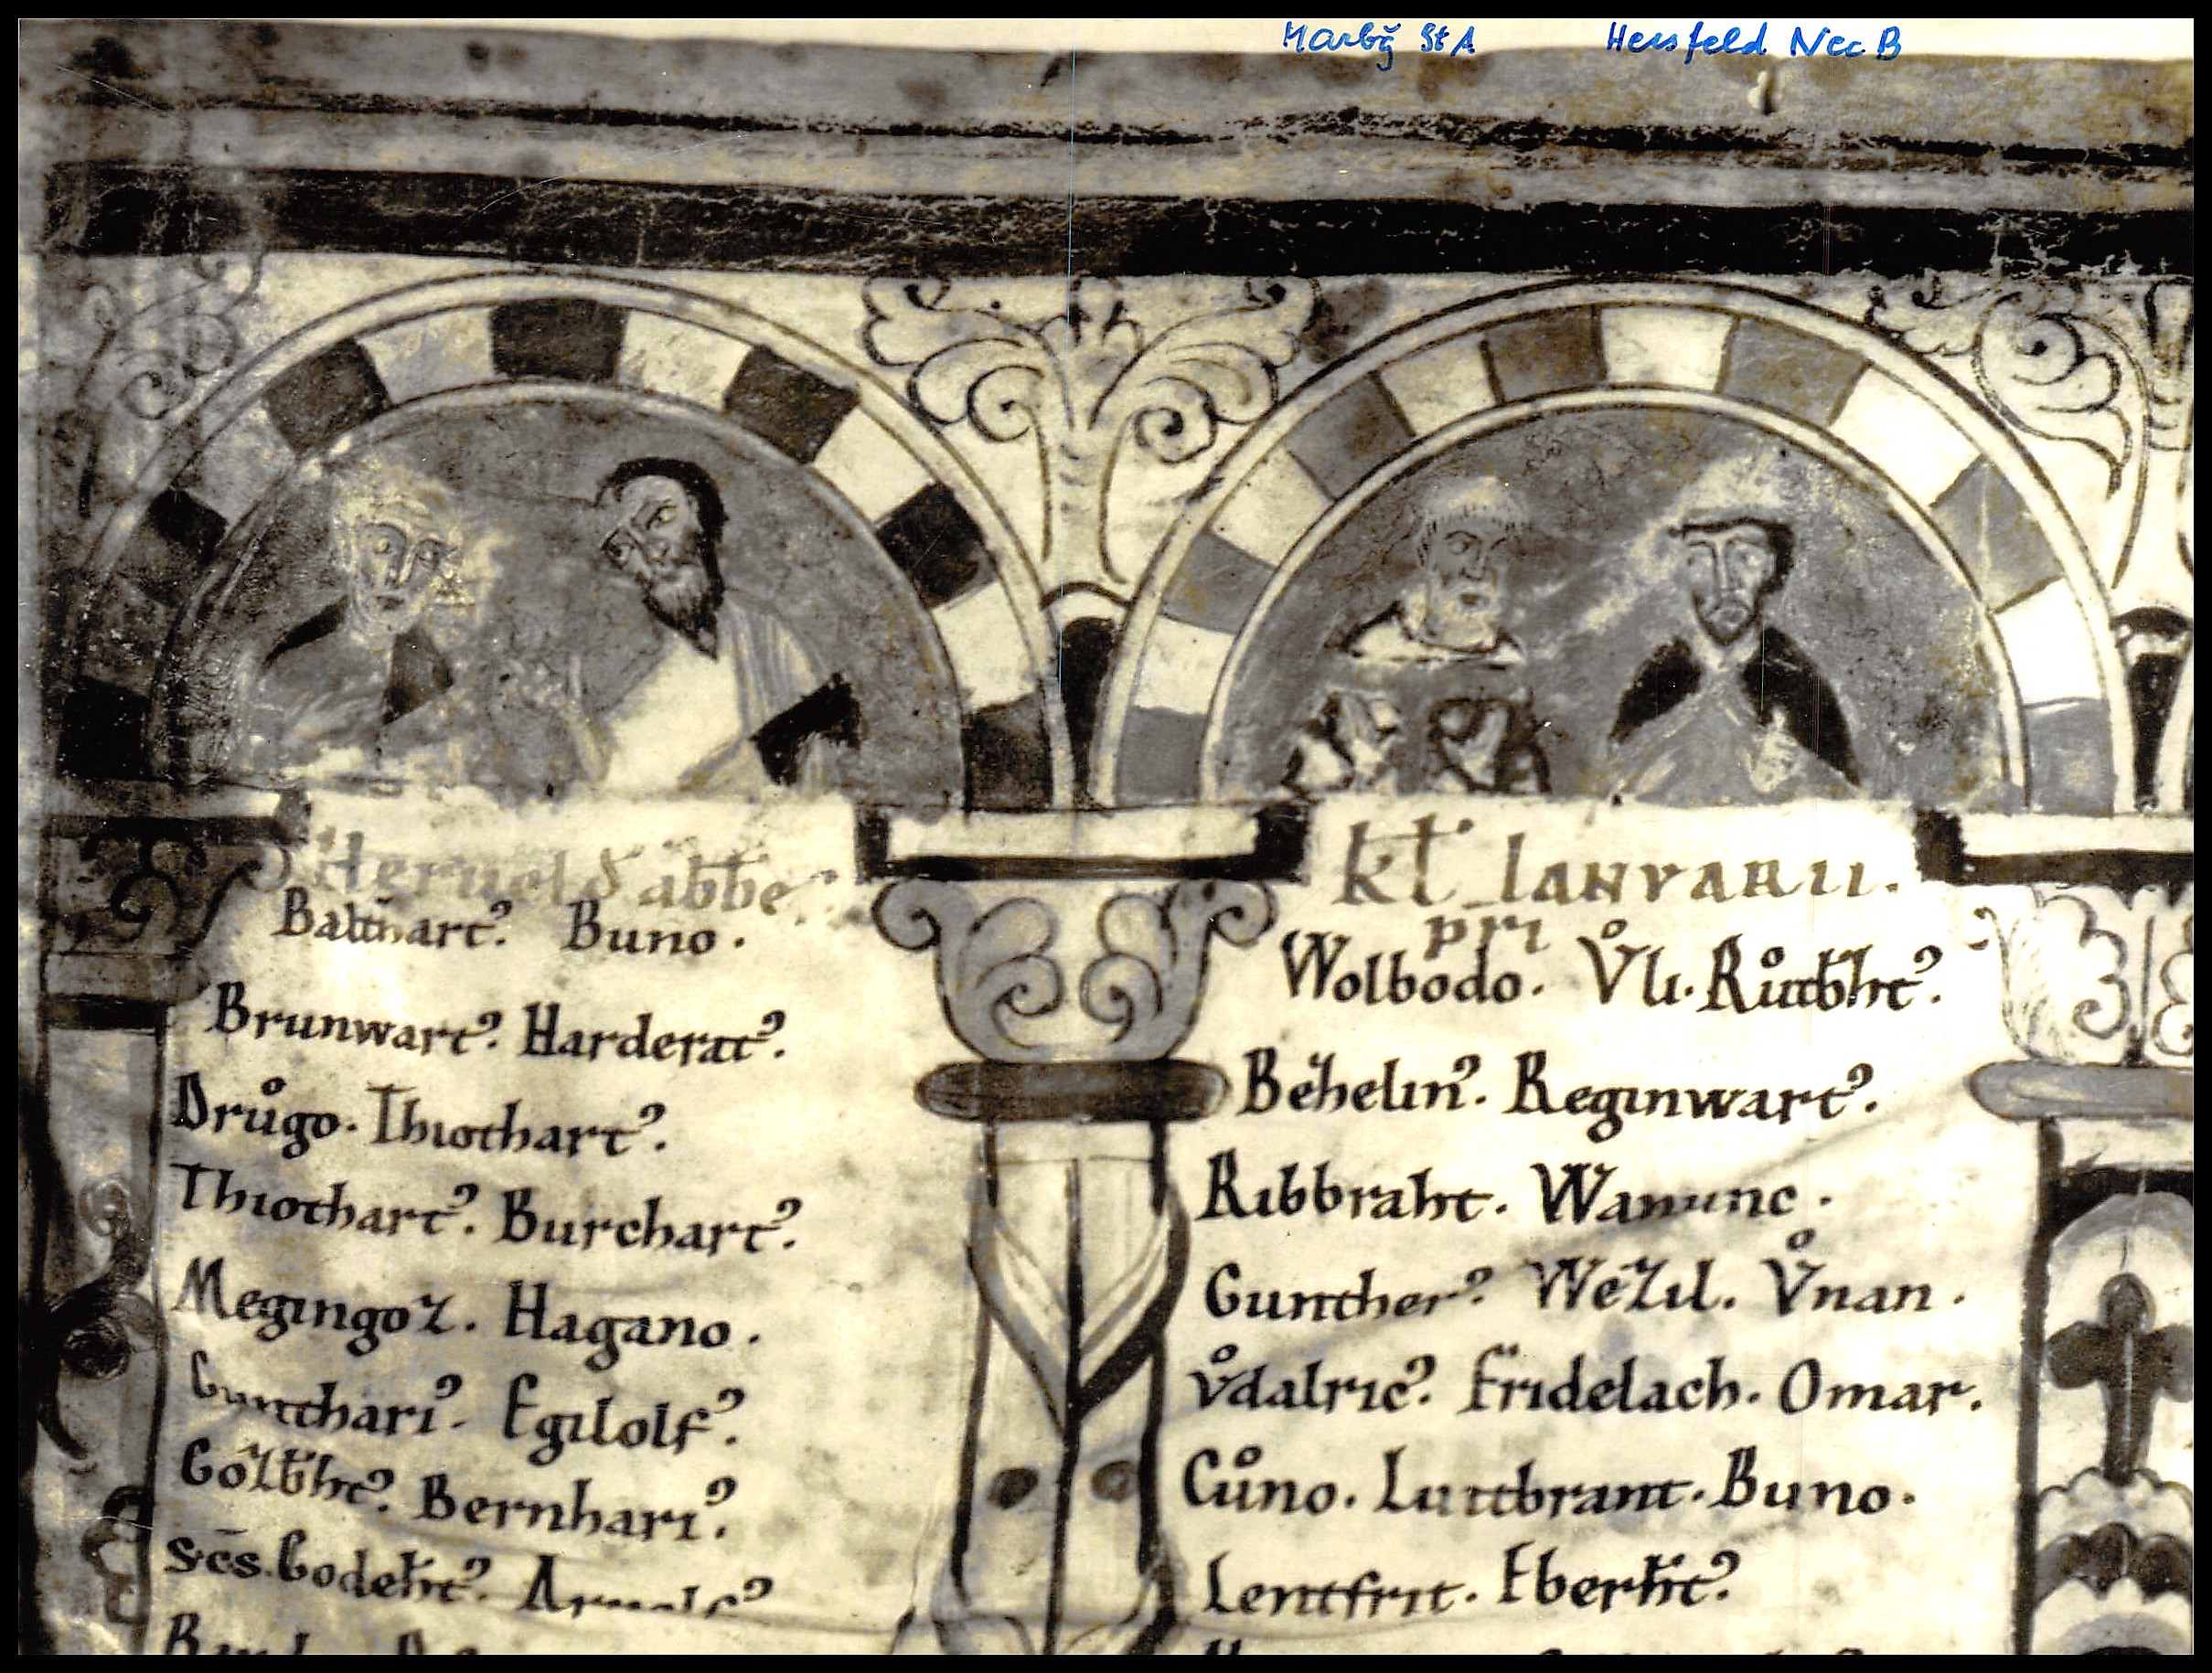 Marbg̃ StA Hersfeld Nec B
Herueld abb̅e
Balthart᾿. Buno.
Brunwart᾿. Harderat᾿.
Drůgo. Thiothart᾿.
Thiothart᾿. Burchart᾿.
Megingoz. Hagano.
Gunthari᾿. Egilolf᾿.
Gozb̅ht᾿. Bernhari᾿.
sc̅s. Godeh̅t᾿. Arnolf᾿
kl̅ Ianvarii.
pri
Wolbodo. V̊li. Růtb̅ht᾿.
Reginwart᾿.
Ribbraht.
Gunther᾿. Wezil. V̊nan.
v̊dalric᾿. Fridelach. Omar.
Cůno. Luitbrant. Buno.
Lentfrit. Eberh̅t᾿.